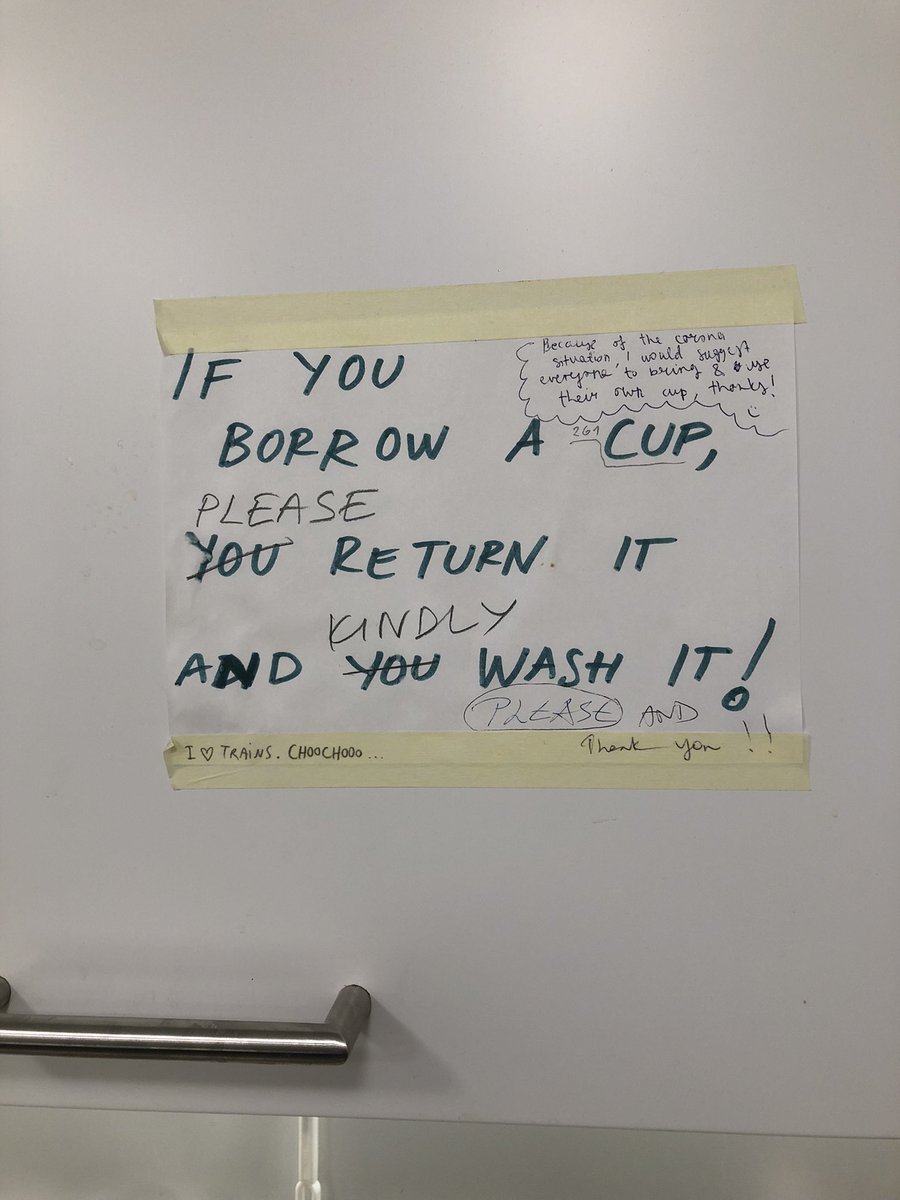 Because of the corona
situation, I would suggest
everyone to bring & use
their own cup, thanks!
IF YOU
BORROW A CUP,
PLEASE
YOU RETURN IT
KINDLY
AND YOU WASH IT!
PLEASE AND
Thank you !!
I ♡ TRAINS. CHOOCHOOO...